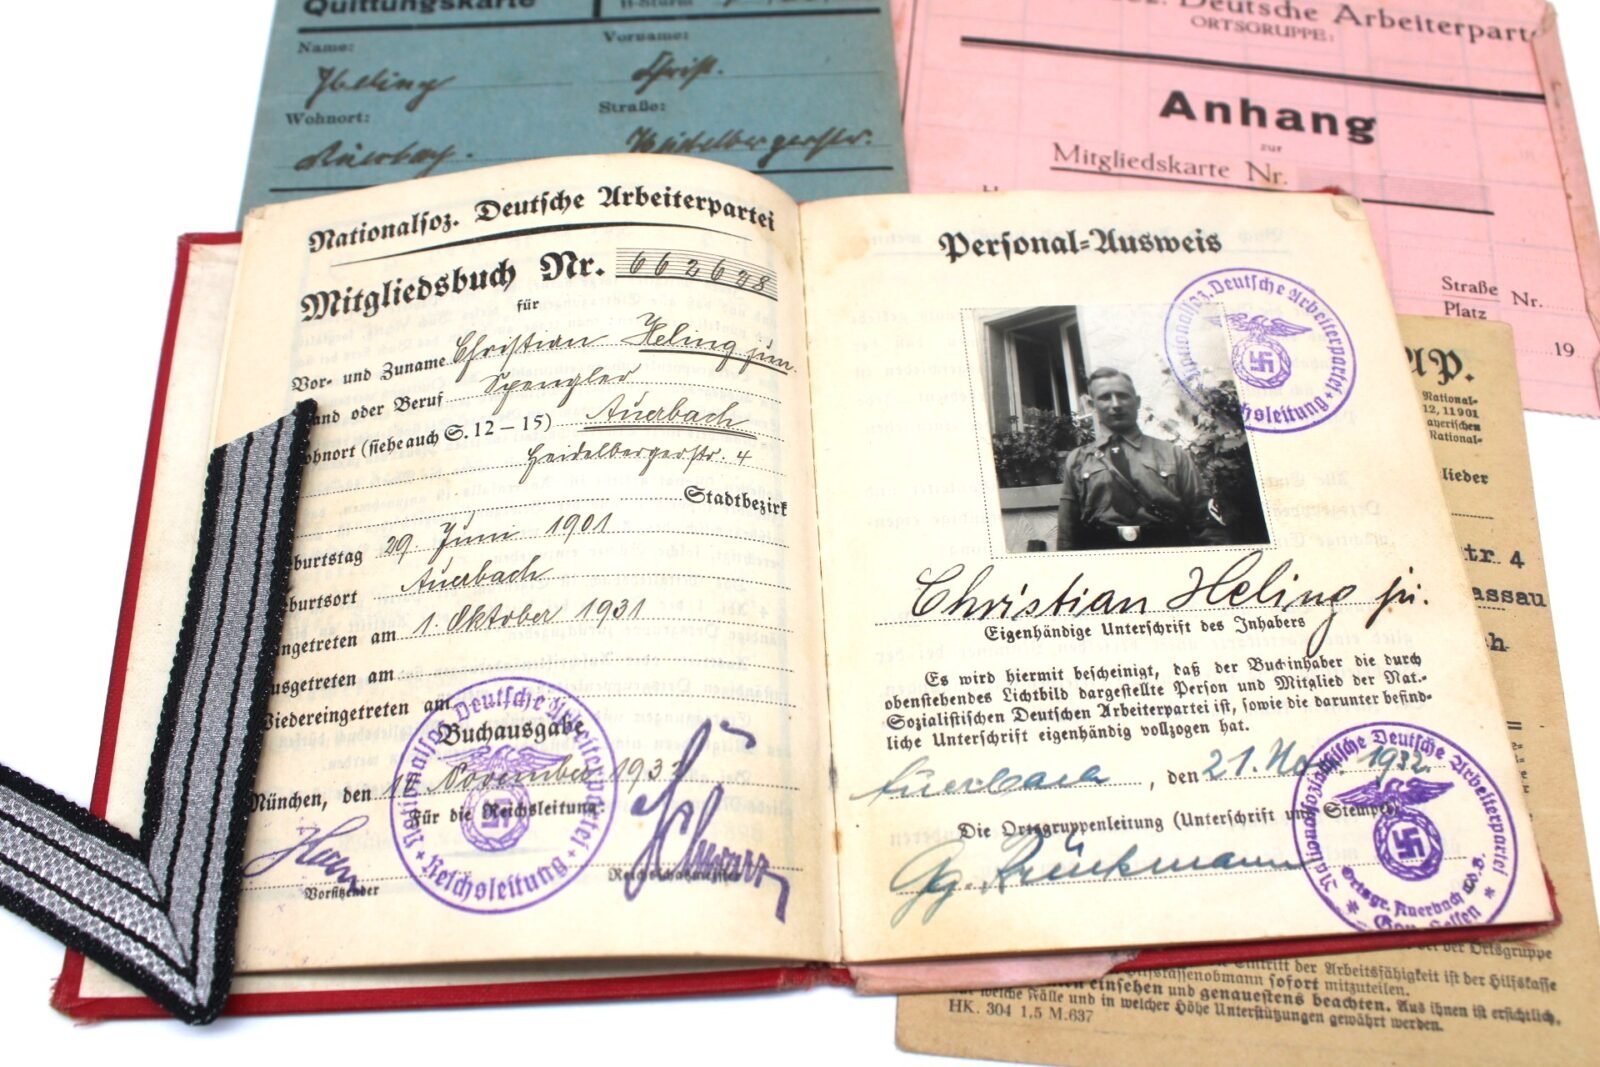 Quittungskarte
Name:
Vorname:
Heling
Christ.
Wohnort:
Straße:
Auerbach.
Heidelbergerstr.
Deutsche Arbeiterparte
ORTSGRUPPE:
Anhang
zur
Mitgliedskarte Nr.
Straße
Nr.
Platz
19
AP.
National-
12, 11901
ayerischen
National-
lieder
tr. 4
assau
h
Nationalsoz. Deutsche Arbeiterpartei
Mitgliedsbuch Nr. 662688
für
Vor- und Zuname Christian Heling jun.
and oder Beruf Spengler
ohnort (siehe auch S. 12 – 15) Auerbach
Heidelbergerstr. 4
Stadtbezirk
burtstag 29. Juni 1901
burtsort Auerbach
ngetreten am 1. Oktober 1931
usgetreten am
Wiedereingetreten am
Buchausgabe
München, den November 193
Für die Reichsleitung:
Vorsitzender
Reichsschatzmeister
Nationalsoz. Deutsche Arbeiterpartei
Reichsleitung
Personal-Ausweis
Nationalsoz. Deutsche Arbeiterpartei
chsleitung
Christian Heling ju.
Eigenhändige Unterschrift des Inhabers
Es wird hiermit bescheinigt, daß der Buchinhaber die durch
obenstehendes Lichtbild dargestellte Person und Mitglied der Nat.-
Sozialistischen Deutschen Arbeiterpartei ist, sowie die darunter befind-
liche Unterschrift eigenhändig vollzogen hat.
Auerbach, den 21. Nov. 1932.
Die Ortsgruppenleitung (Unterschrift und Stempel)
Gg. Brückmann
Nationalsozialistische Deutsche Arbeiterpartei
Ortsgr. Auerbach a.d.B.
Gau Hessen
der Ortsgruppe
Eintritt der Arbeitsfähigkeit ist der Hilfskasse
Hilfskassenobmann sofort mitzuteilen.
einsehen und genauestens beachten. Aus ihnen ist ersichtlich,
welche Fälle und in welcher Höhe Unterstützungen gewährt werden.
HK. 304 1,5 M.637